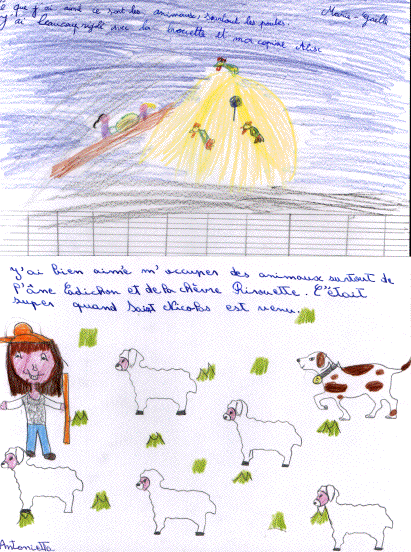 Ce que j'ai aimé ce sont les animaux, surtout les poules. Marie-Gaëlle
J'ai beaucoup rigolé avec la brouette et ma copine
y'ai bien aimé m'occuper des animaux surtout de
l'âne Cadichon et de la chèvre Birouette. C'était
super quand Saint Nicolas est venu.
Antonietta